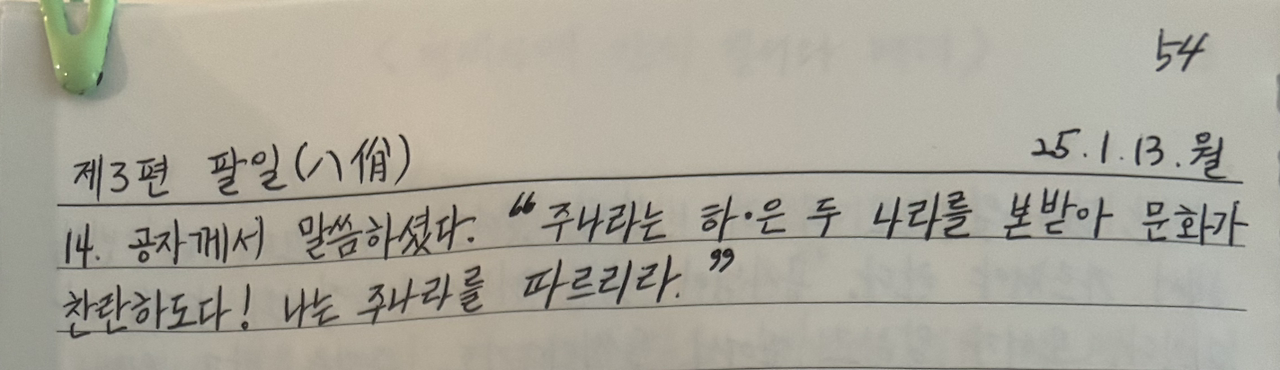 54
제3편 팔일(八佾) 25.1.13.월
14. 공자께서 말씀하셨다. “주나라는 하·은 두 나라를 본받아 문화가
찬란하도다! 나는 주나라를 파르리라.”